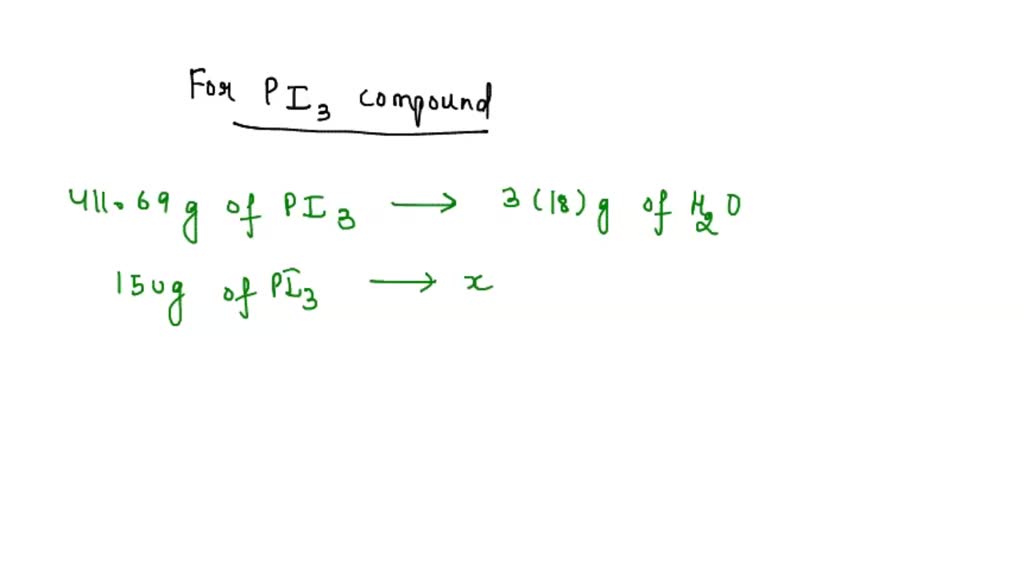 For PI₃ compound
411.69 g of PI₃ → 3(18) g of H₂O
150g of PI₃ → x